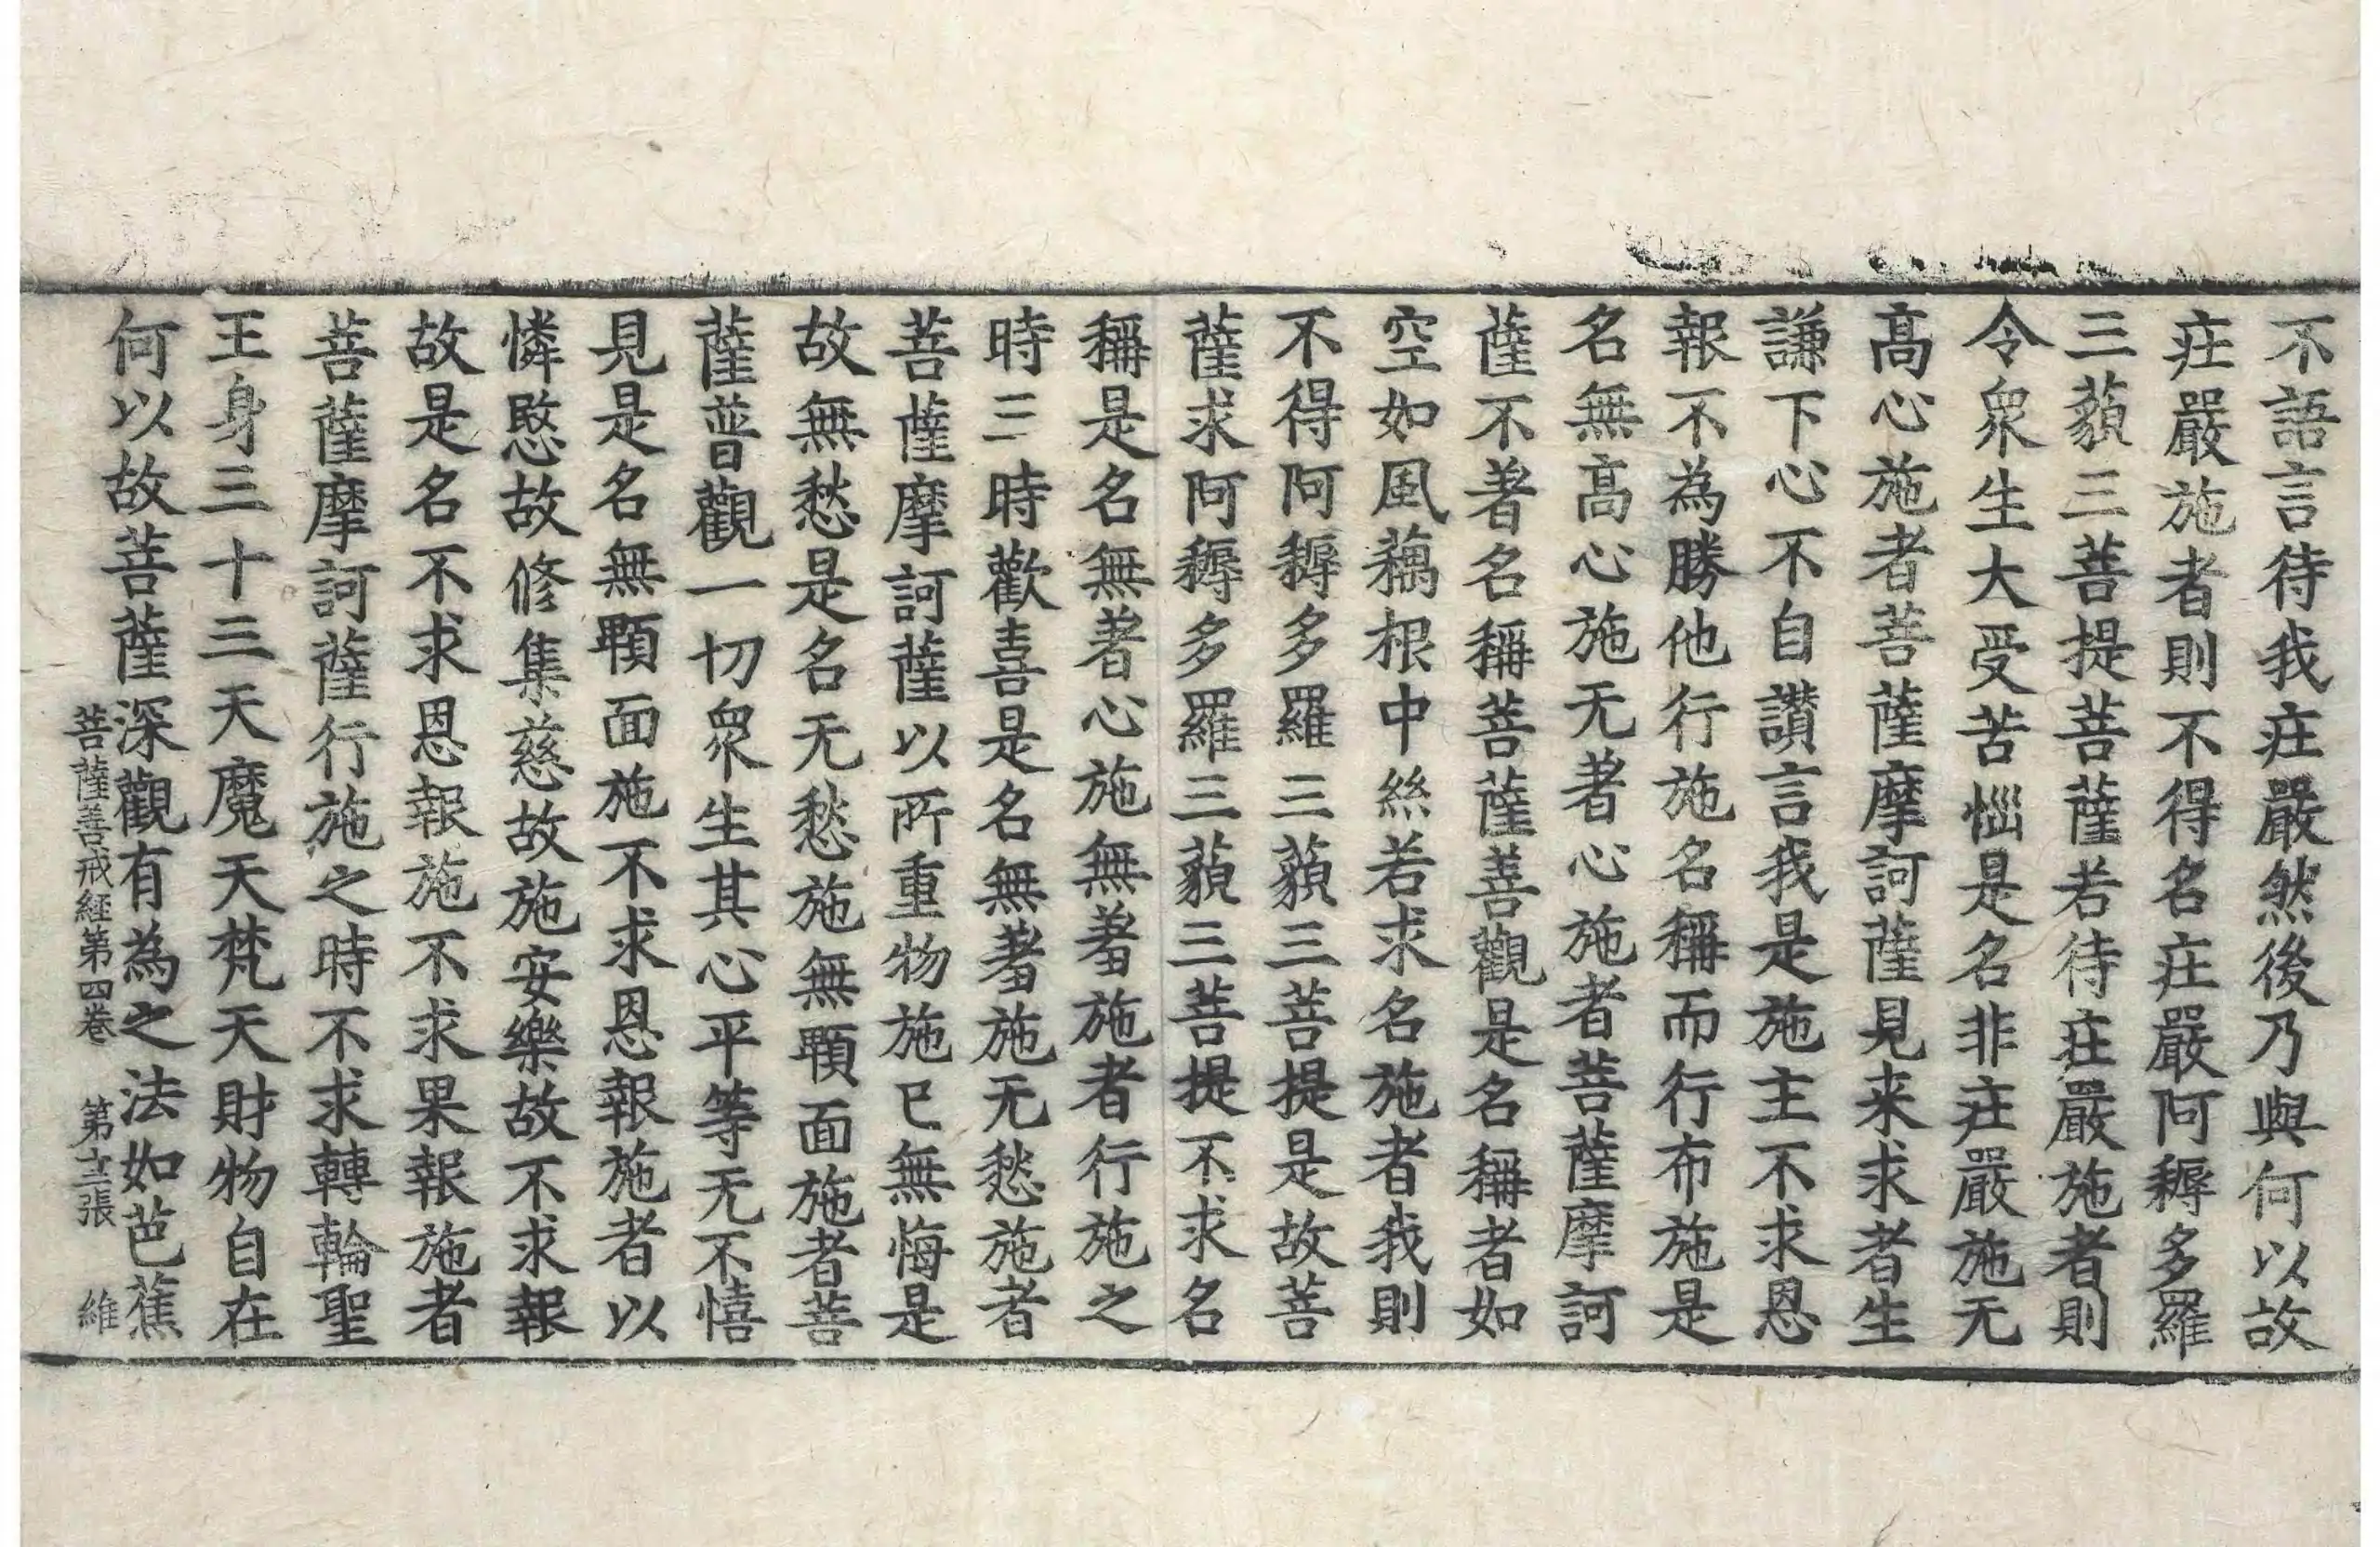 不語言待我疰嚴然後乃與何以故
疰嚴施者則不得名疰嚴阿耨多羅
三藐三菩提菩薩若待疰嚴施者則
令衆生大受苦惱是名非疰嚴施无
髙心施者菩薩摩訶薩見来求者生
謙下心不自讃言我是施主不求恩
報不為勝他行施名稱而行布施是
名無髙心施无著心施者菩薩摩訶
薩不著名稱菩薩善觀是名稱者如
空如風藕根中絲若求名施者我則
不得阿耨多羅三藐三菩提是故菩
薩求阿耨多羅三藐三菩提不求名
稱是名無著心施無羞施者行施之
時三時歡喜是名無羞施无愁施者
菩薩摩訶薩以所重物施已無悔是
故無愁是名无愁施無顋面施者菩
薩普觀一切衆生其心平等无不憘
見是名無顋面施不求恩報施者以
憐愍故修集慈故施安樂故不求報
故是名不求恩報施不求果報施者
菩薩摩訶薩行施之時不求轉輪聖
王身三十三天魔天梵天財物自在
何以故菩薩深觀有為之法如芭蕉
菩薩善戒経第四卷 第十三張 維